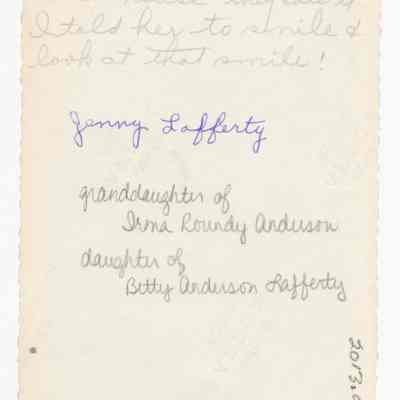 house
I told her to smile &
look at that smile!
Jenny Lafferty
granddaughter of
Irma Roundy Anderson
daughter of
Betty Anderson Lafferty
2013.